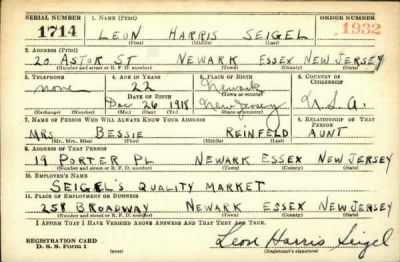 SERIAL NUMBER 1. NAME (Print) ORDER NUMBER
1714 LEON HARRIS SEIGEL 1932
(First) (Middle) (Last)
2. ADDRESS (Print)
20 ASTOR ST NEWARK ESSEX NEW JERSEY
(Number and street or R. F. D. number) (Town) (County) (State)
3. TELEPHONE 4. AGE IN YEARS 5. PLACE OF BIRTH 6. COUNTRY OF CITIZENSHIP
none 22 Newark
DATE OF BIRTH (Town or county)
Dec 26 1918 New Jersey U.S.A.
(Exchange) (Number) (Mo.) (Day) (Yr.) (State or country)
7. NAME OF PERSON WHO WILL ALWAYS KNOW YOUR ADDRESS 8. RELATIONSHIP OF THAT PERSON
MRS BESSIE REINFELD AUNT
(Mr., Mrs., Miss) (First) (Middle) (Last)
9. ADDRESS OF THAT PERSON
19 PORTER PL NEWARK ESSEX NEW JERSEY
(Number and street or R. F. D. number) (Town) (County) (State)
10. EMPLOYER'S NAME
SEIGEL'S QUALITY MARKET
11. PLACE OF EMPLOYMENT OR BUSINESS
258 BROADWAY NEWARK ESSEX NEW JERSEY
(Number and street or R. F. D. number) (Town) (County) (State)
I AFFIRM THAT I HAVE VERIFIED ABOVE ANSWERS AND THAT THEY ARE TRUE.
REGISTRATION CARD Leon Harris Seigel
D. S. S. Form 1 (over) (Registrant's signature)